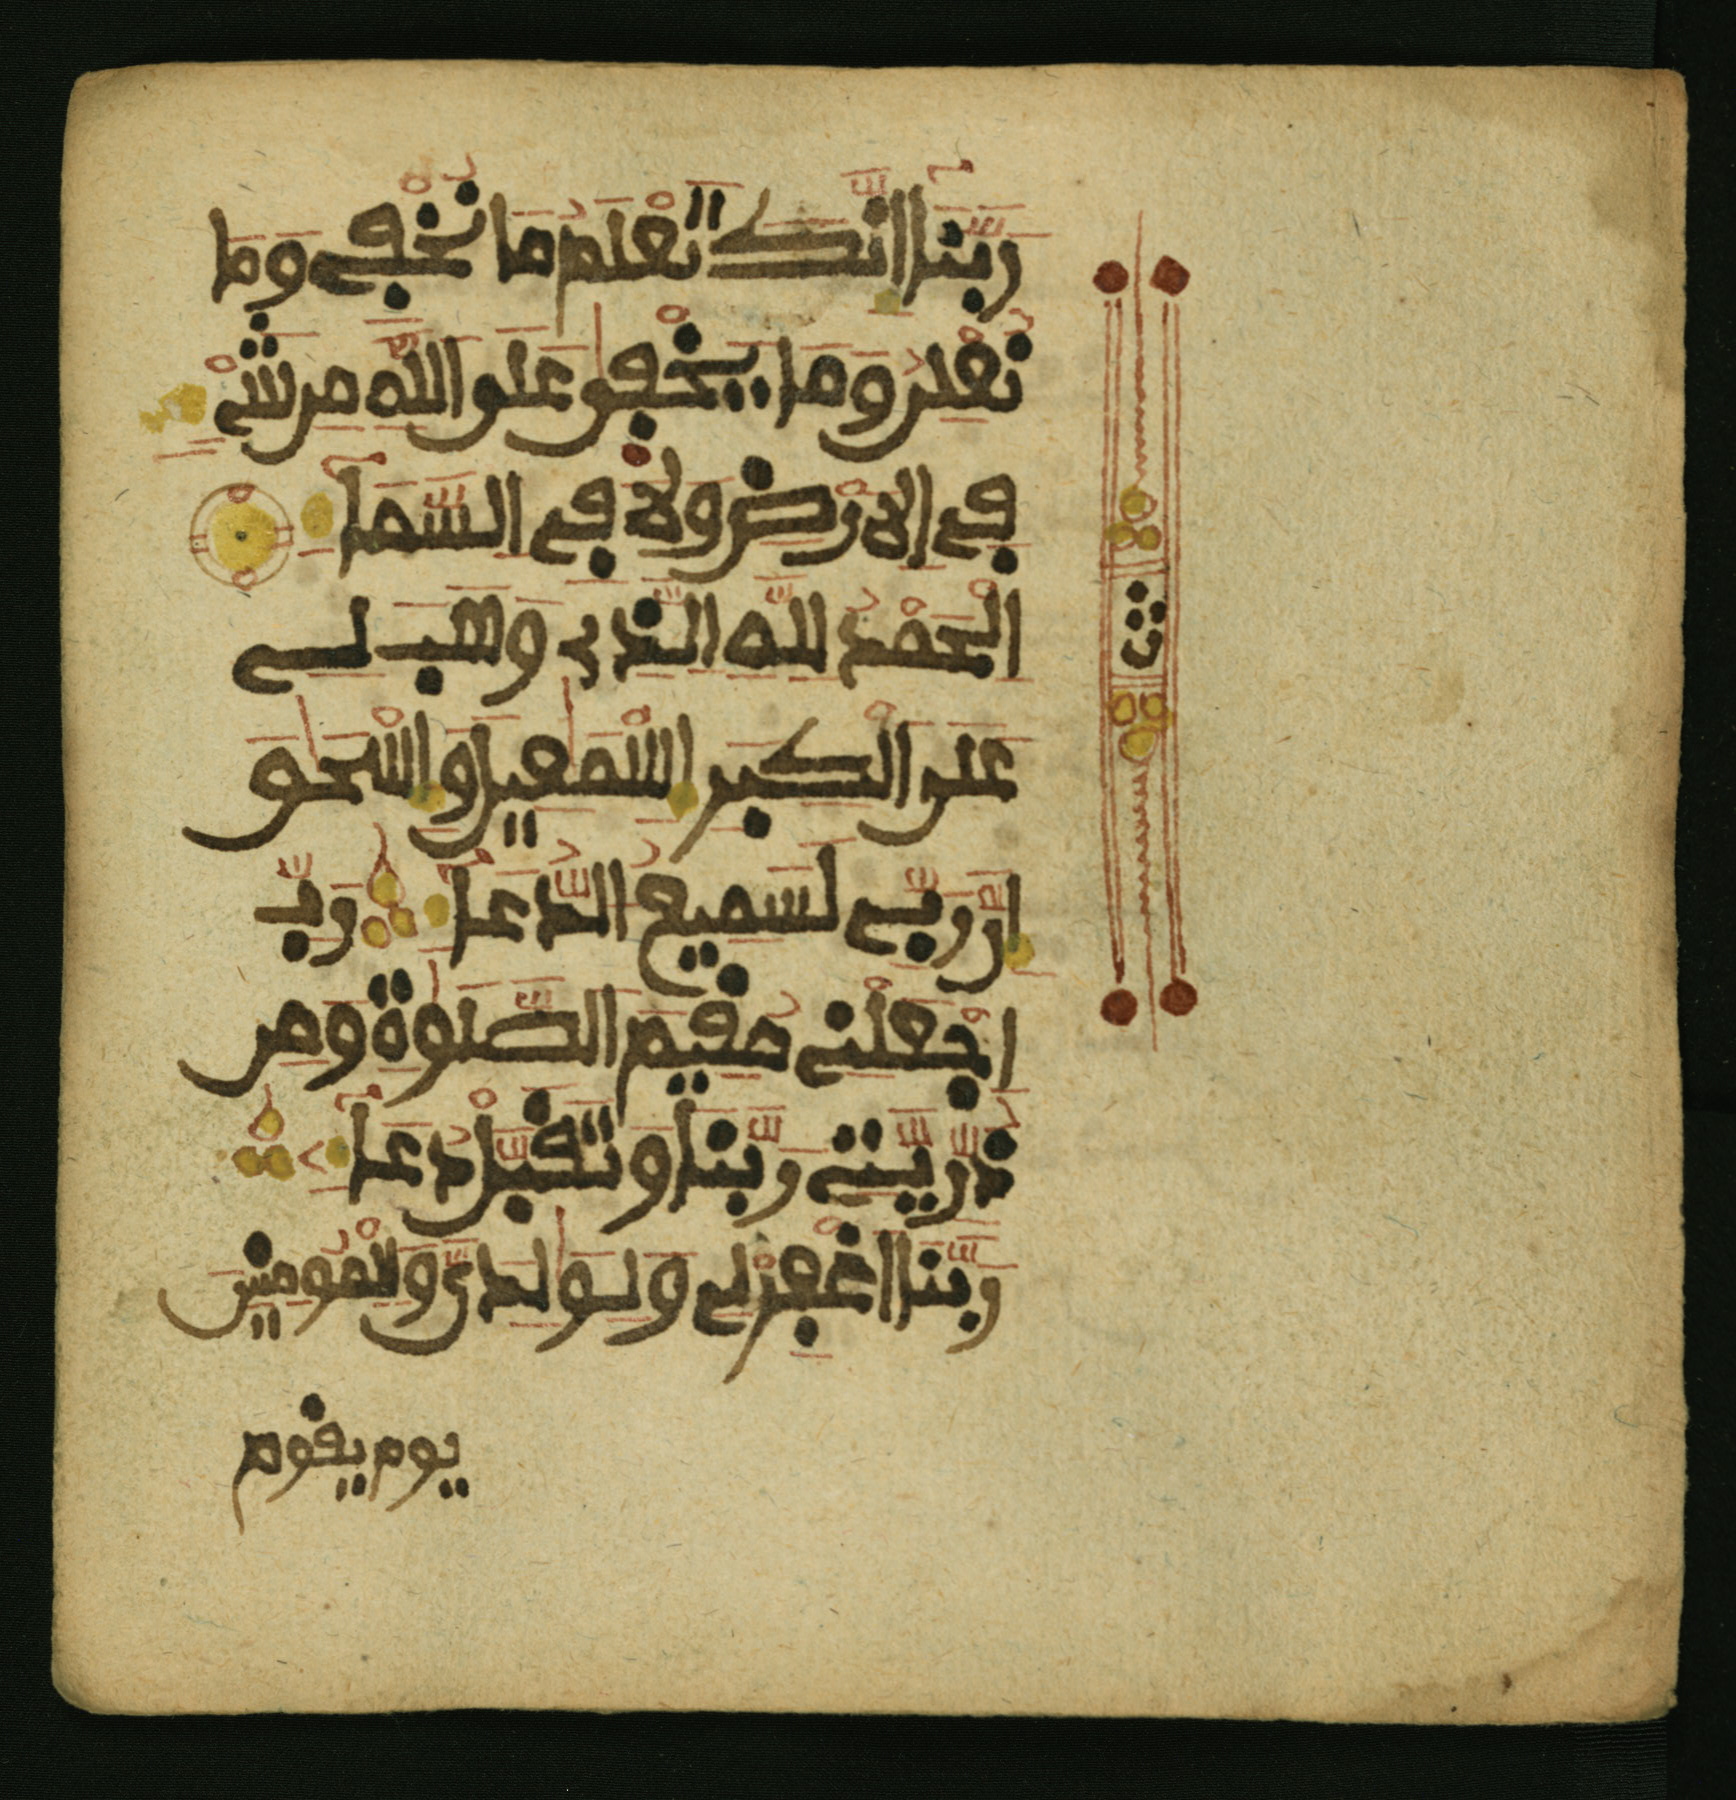 ربنا انك تعلم ما نخفى وما
نعلن وما يخفى على الله من شى
فى الارض ولا فى السما
الحمد لله الذى وهب لى
على الكبر اسمعيل واسحق
ان ربى لسميع الدعا رب
اجعلنى مقيم الصلوة ومن
ذريتى ربنا وتقبل دعا
ربنا اغفر لى ولولدى وللمومنين
يوم يقوم
ث